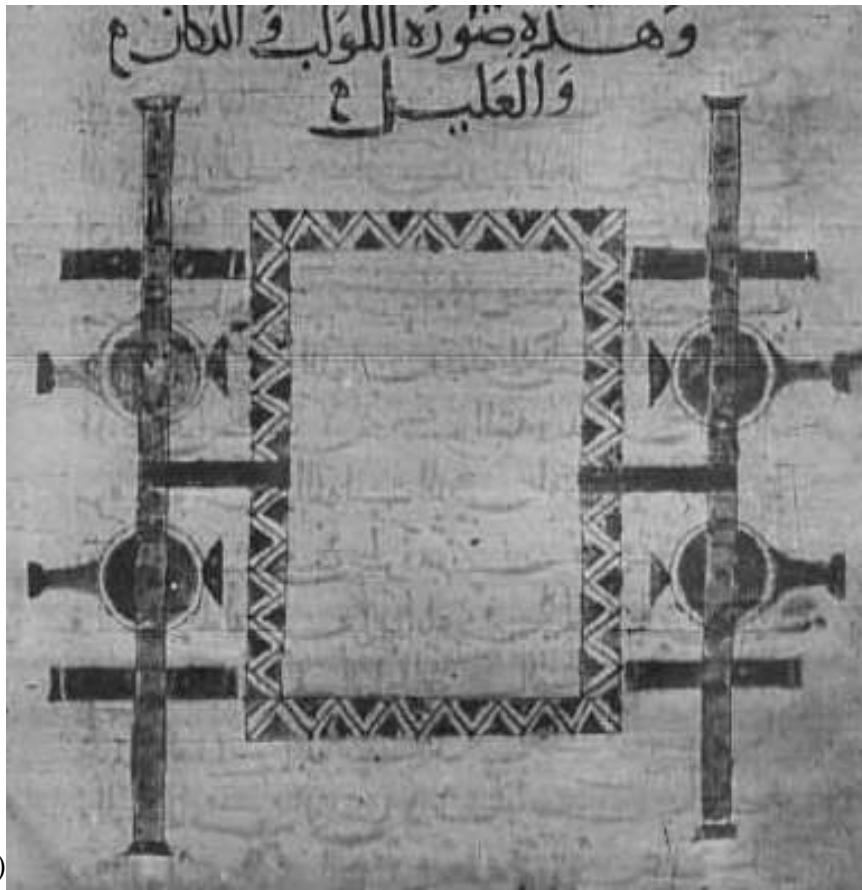 وهذه صورة اللولب و الدكان
والعليل
)